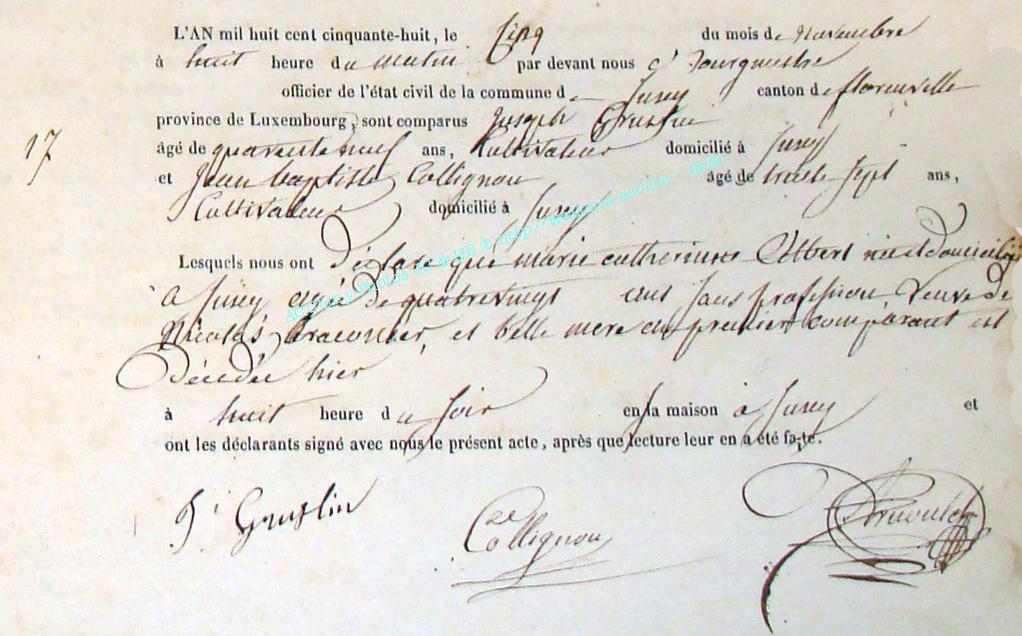 L'AN mil huit cent cinquante-huit, le cinq du mois de novembre
à huit heure du matin par devant nous
officier de l'état civil de la commune de Izel canton de florenville
province de Luxembourg, sont comparus Joseph Gruslin
17
âgé de quarante neuf ans, Cultivateur domicilié à
et Jean baptiste Collignon âgé de trente sept ans,
Cultivateur domicilié à
Lesquels nous ont déclaré que marie catherinne née et domiciliée
a agée de quatrevingt ans sans profession, veuve de
Nicolas braconnier, et belle mere du premier comparant est
décédée hier
à huit heure du soir en sa maison à et
ont les déclarants signé avec nous le présent acte, après que lecture leur en a été faite.
J. Gruslin Collignon